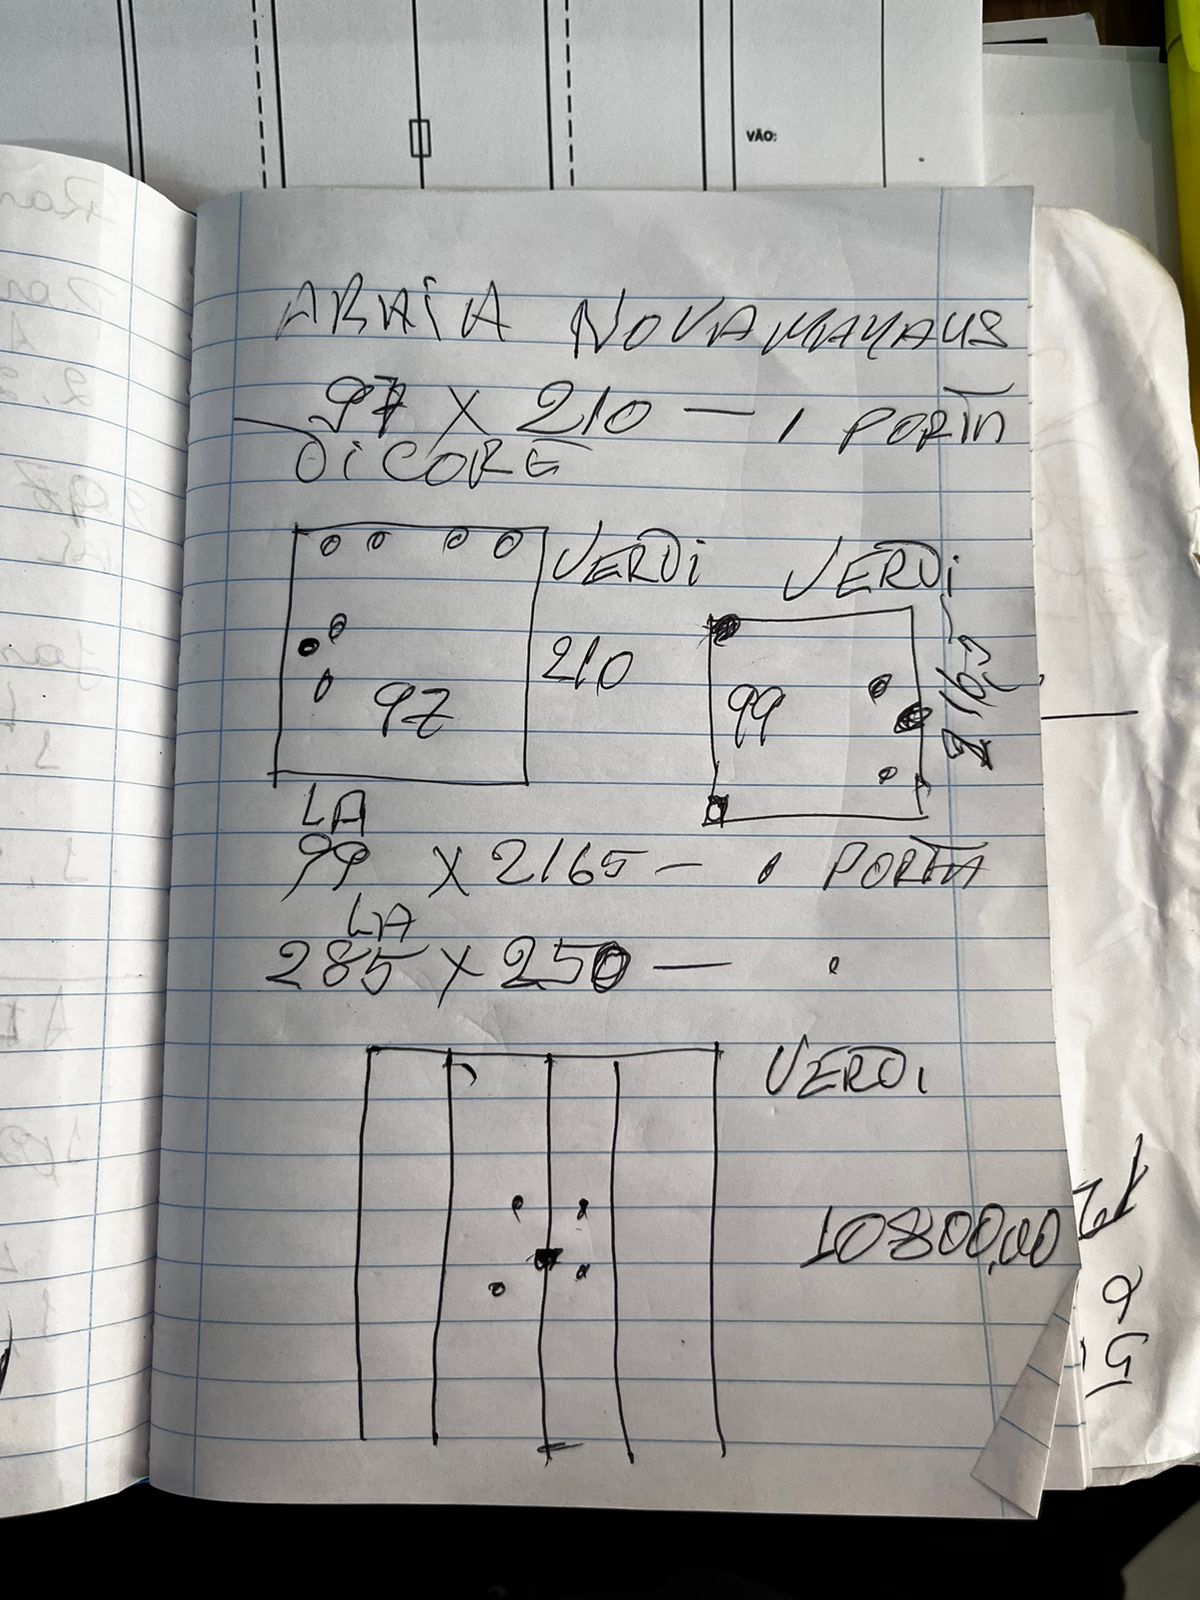 VÃO:
NOVAMANAUS
97 X 210 — 1 PORTA
DICORE
VERDI VERDI
210
97
99
2165
LA
99 X 2165 — 1 PORTA
LA
285 X 250 — 1
VERDI
10800,00